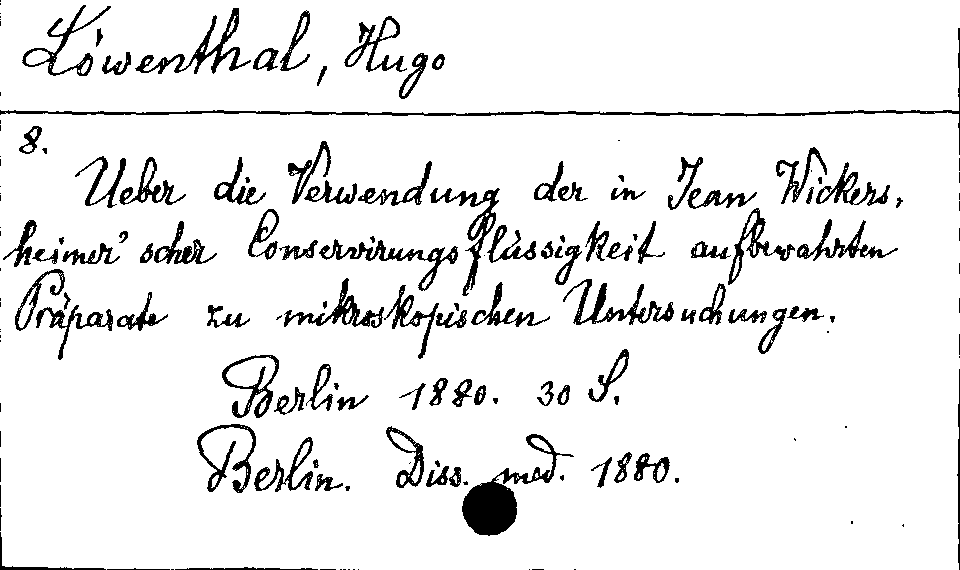 Löwenthal, Hugo
8.
Ueber die Verwendung der in Jean Wickers,
heimer'scher Conservirungsflüssigkeit aufbewahrten
Präparate zu mikroskopischen Untersuchungen.
Berlin 1880. 30 S.
Berlin. Diss. med. 1880.